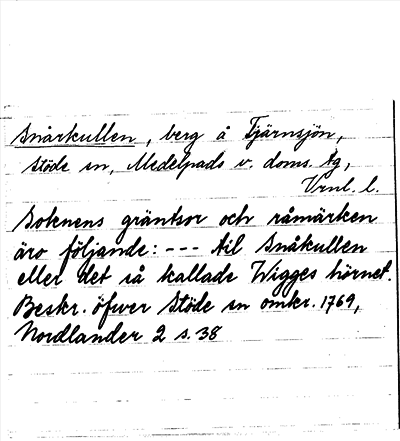 Snårkullen, berg å Tjärnsjön,
Stöde sn, Medelpads v. doms. tg,
Vrnl. l.
Soknens gräntsor och råmärken
äro följande: --- til Snåkullen
eller det så kallade Wigges hörnet.
Beskr. öfwer Stöde sn omkr. 1769,
Nordlander 2 s. 38